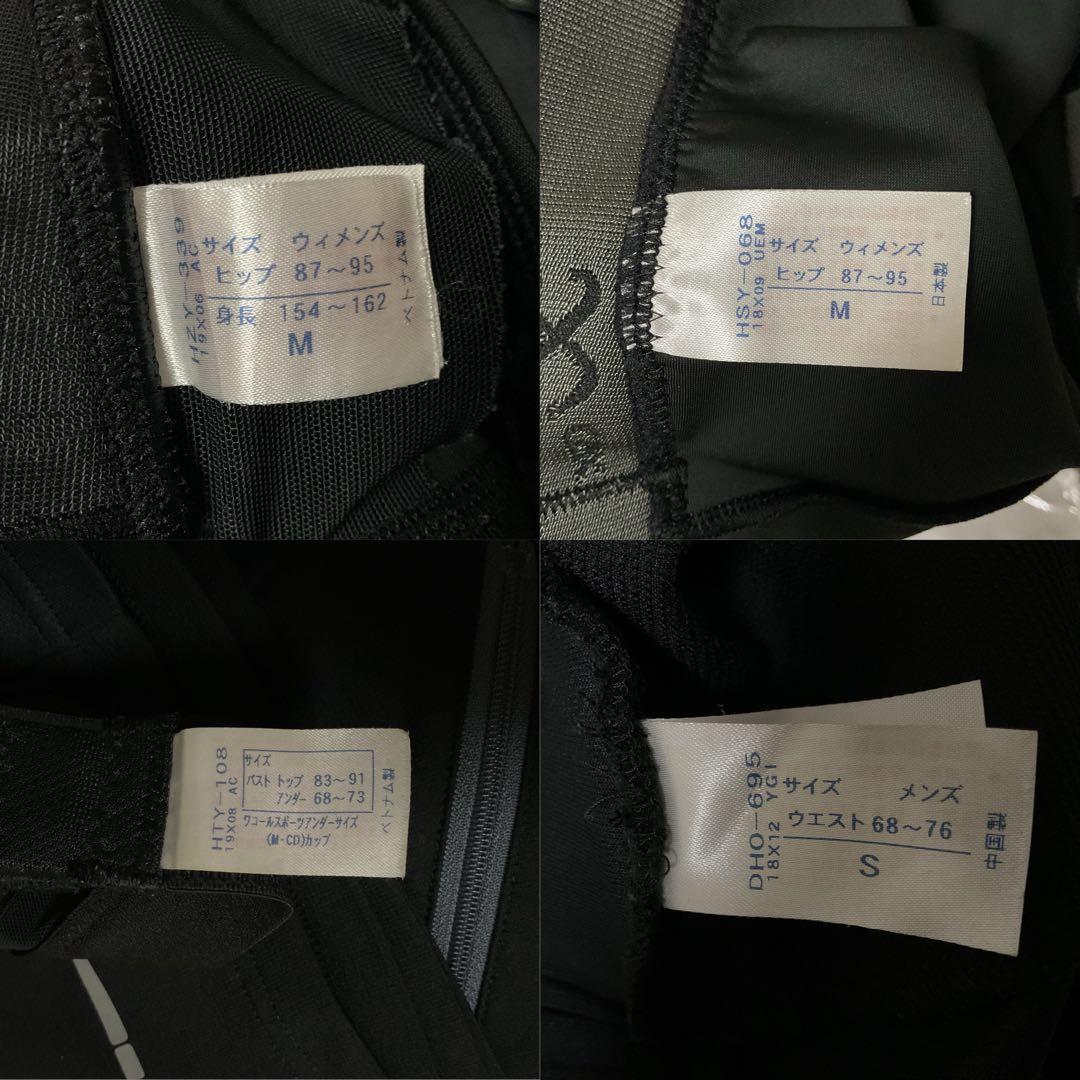 HZY-339
19X06 AC
サイズ ウィメンズ
ヒップ 87～95
身長 154～162
M
ベトナム製
HSY-068
18X09 UEM
サイズ ウィメンズ
ヒップ 87～95
M
日本製
HTY-108
19X08 AC
サイズ
バスト トップ 83～91
アンダー 68～73
ワコールスポーツアンダーサイズ
(M・CD)カップ
ベトナム製
DHO-695
18X12 YGI
サイズ メンズ
ウエスト 68～76
S
中国製